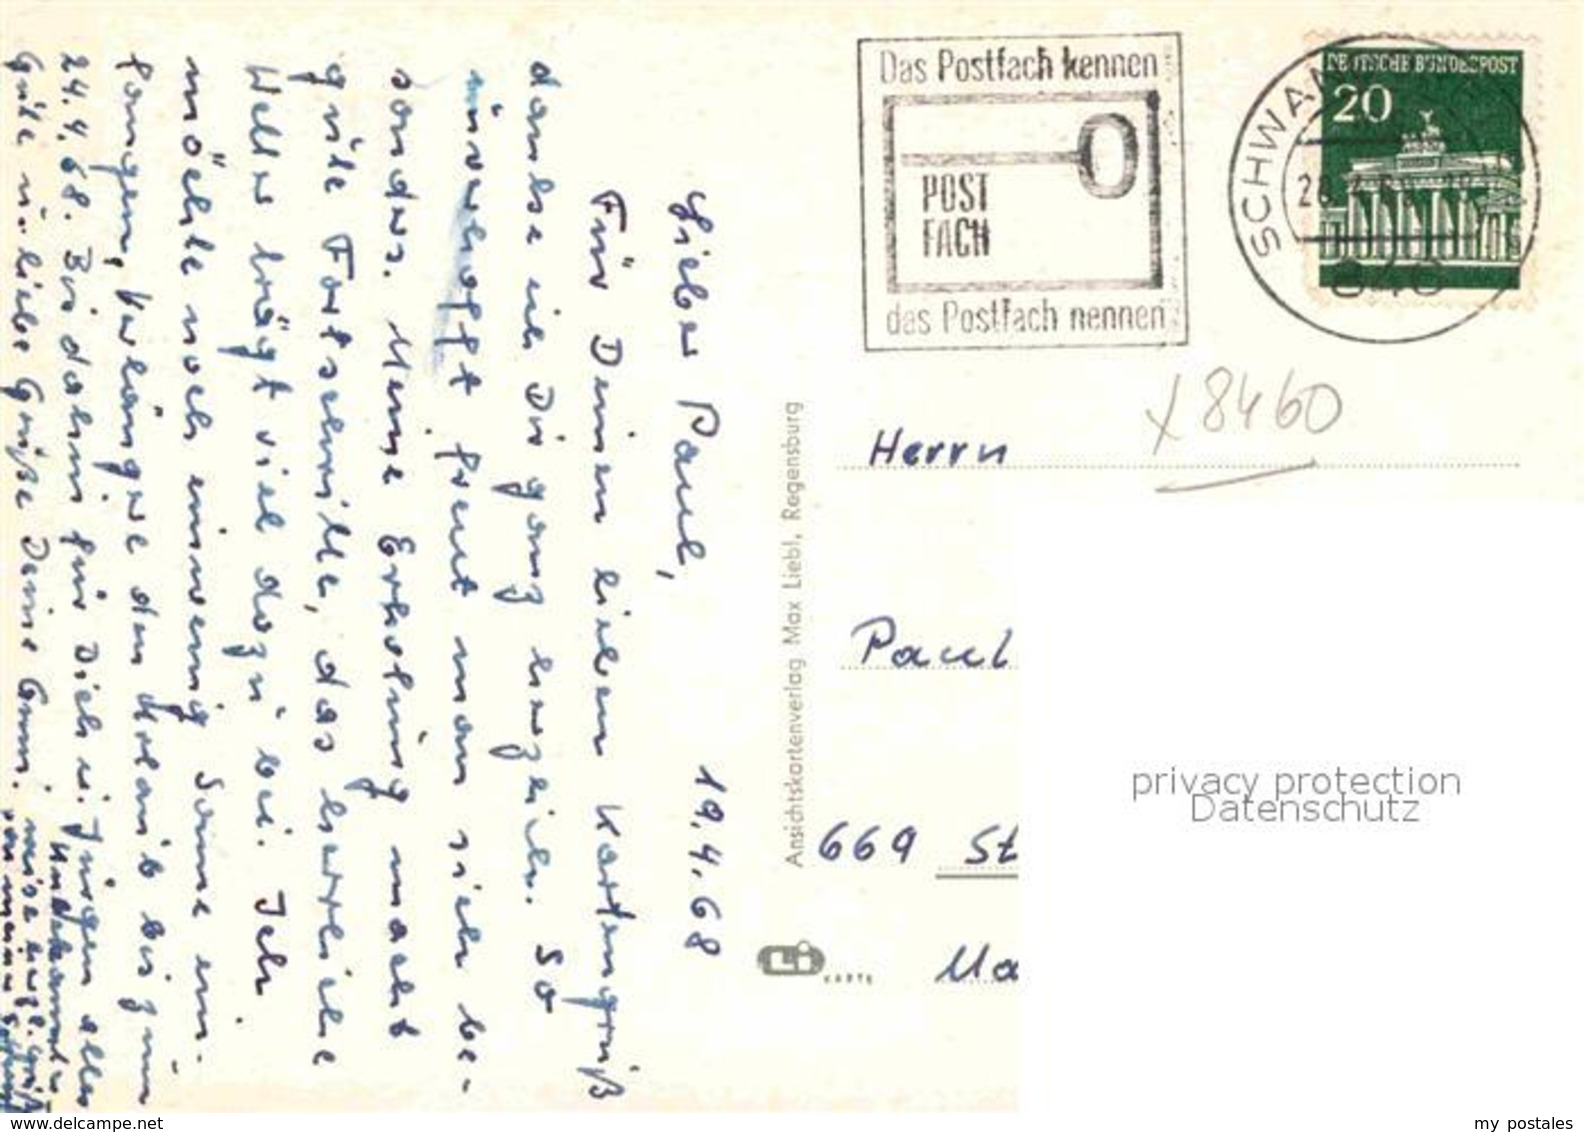 Lieber Paul, 19.4.68
Für Deinen lieben Kartengruß
danke ich Dir ganz herzlich. So
unverhofft freut man sich be-
sonders. Meine Erholung macht
gute Fortschritte, das herrliche
Wetter trägt viel dazu bei. Ich
möchte noch einwenig Sonne ein-
fangen, verlängere den Urlaub bis zum
24.4.68. Bis dahin für Dich u. Jürgen alles
Gute u. liebe Grüße Deine
Unbekannter
Das Postfach kennen
POST
FACH
das Postfach nennen
SCHWAN
DEUTSCHE BUNDESPOST
20
x 8460
Herrn
Paul
669 St
Ma
Ansichtskartenverlag Max Liebl, Regensburg
Li
KARTE
privacy protection
Datenschutz
www.delcampe.net
my postales